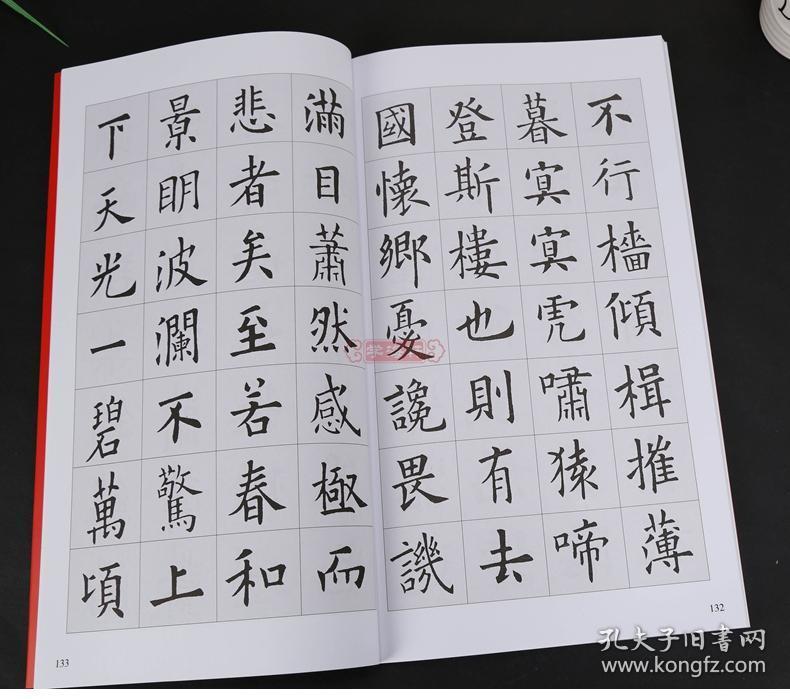 不行檣傾楫摧薄
暮冥冥虎嘯猿啼
登斯樓也則有去
國懷鄉憂讒畏譏
132
滿目蕭然感極而
悲者矣至若春和
景明波瀾不驚上
下天光一碧萬頃
133
孔夫子旧书网
www.kongfz.com